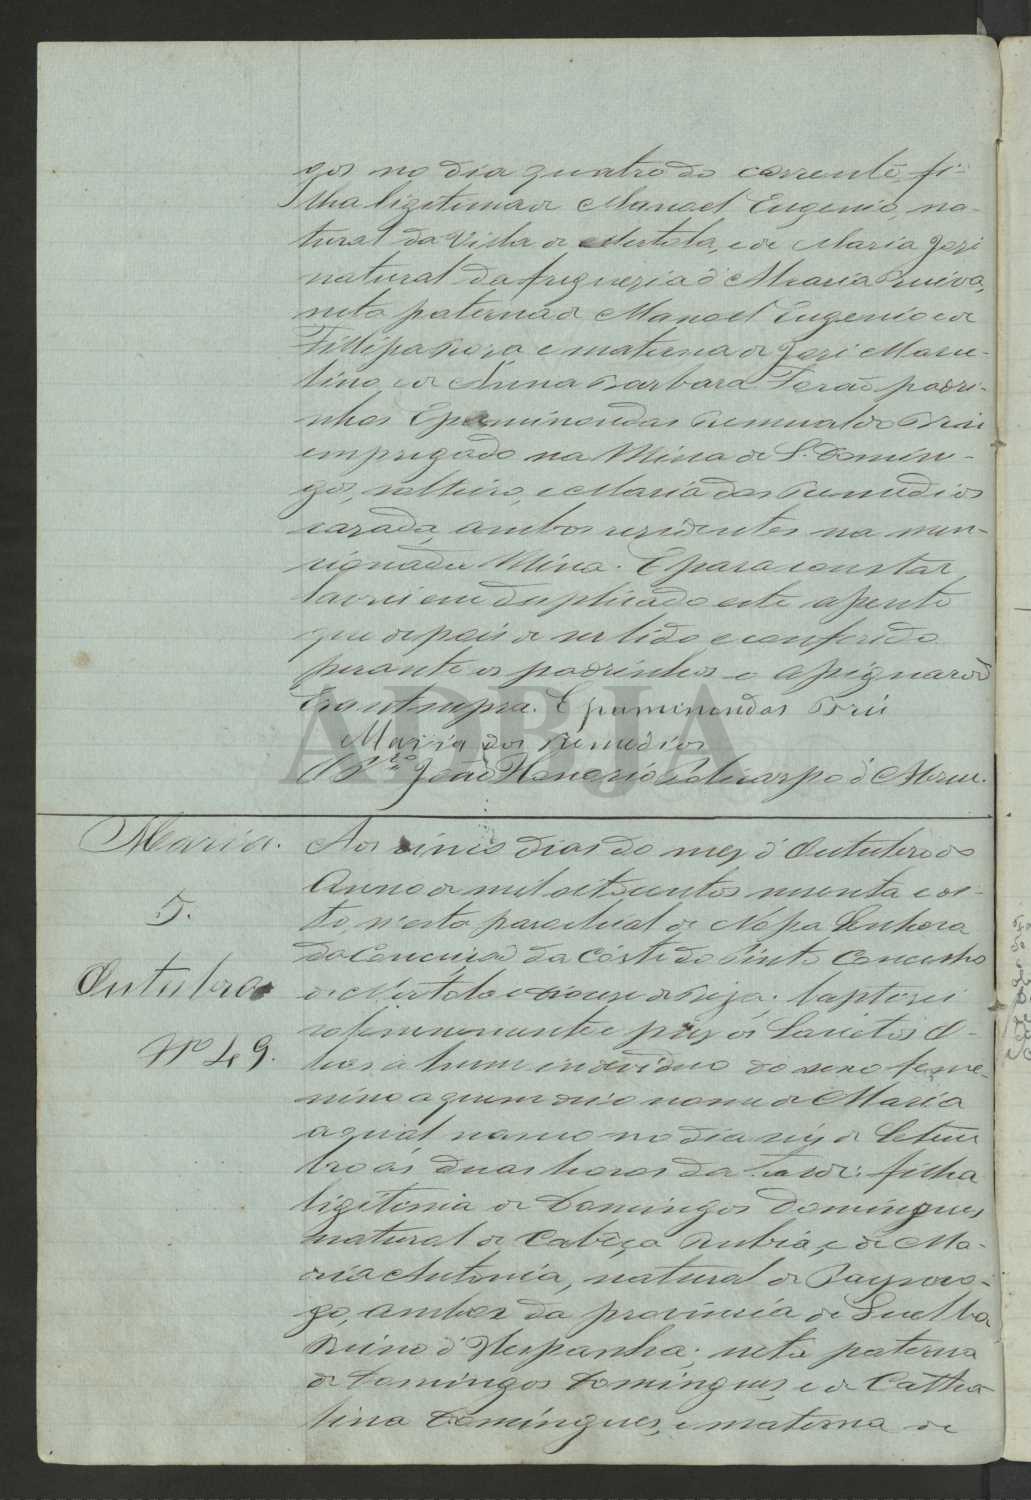 gos no dia quatro do corrente, fi-
lha ligitima de Manoel Eugenio, na-
tural da Villa de Mertola, e de Maria José
natural da freguezia d'Maria Ruiva,
neta paterna de Manoel Eugenio e de
Fillipa Roza e materna de José Marce-
lino, e de Anna Barbara. Forão padri-
nhos Epaminondas
empregado na Mina de S. Domin-
gos, solteiro, e Maria dos Remedios
cazada, ambos rezidentes na men-
cionada Mina. E para constar
lavrei em duplicado este assento
que depois de ser lido e conferido
perante os padrinhos o assignarão
Era ut supra. Epaminondas
Maria dos Remedios
O P. João Honorio Policarpo d'Abreu.
Maria.
5.
Outubro
Nº 49.
Aos cinco dias do mez d'Outubro do
Anno de mil oitocentos noventa e oi-
to, n'esta parochial de Nossa Senhora
da Conceição da Côrte do Pinto Concelho
de Mertola e Diocese de Beja: baptisei
solemnemente e puz os Santos O-
leos a hum individuo do sexo feme-
nino a quem dei o nome de Maria
a qual nasceo no dia seis de Setem
bro ás duas horas da tarde: filha
ligitima de Domingos Domingues,
natural de Cabeça Rubia, e de Ma-
ria Antonia, natural de Paymo-
go, ambos da provincia de Huelba
Reino d'Hespanha; neta paterna
de Domingos Domingues, e de Catha-
lina Domingues, e materna de
ADBJA